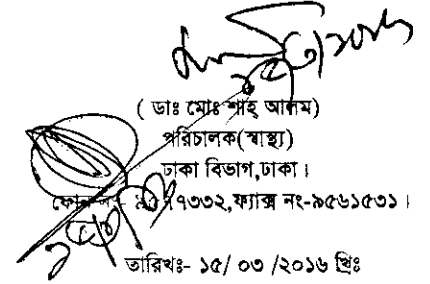 ( ডাঃ মোঃ শাহ্ আলম)
পরিচালক(স্বাস্থ্য)
ঢাকা বিভাগ,ঢাকা।
ফোন ৭৩৩২,ফ্যাক্স নং-৯৫৬১৫৩১।
তারিখঃ- ১৫/ ০৩ /২০১৬ খ্রিঃ